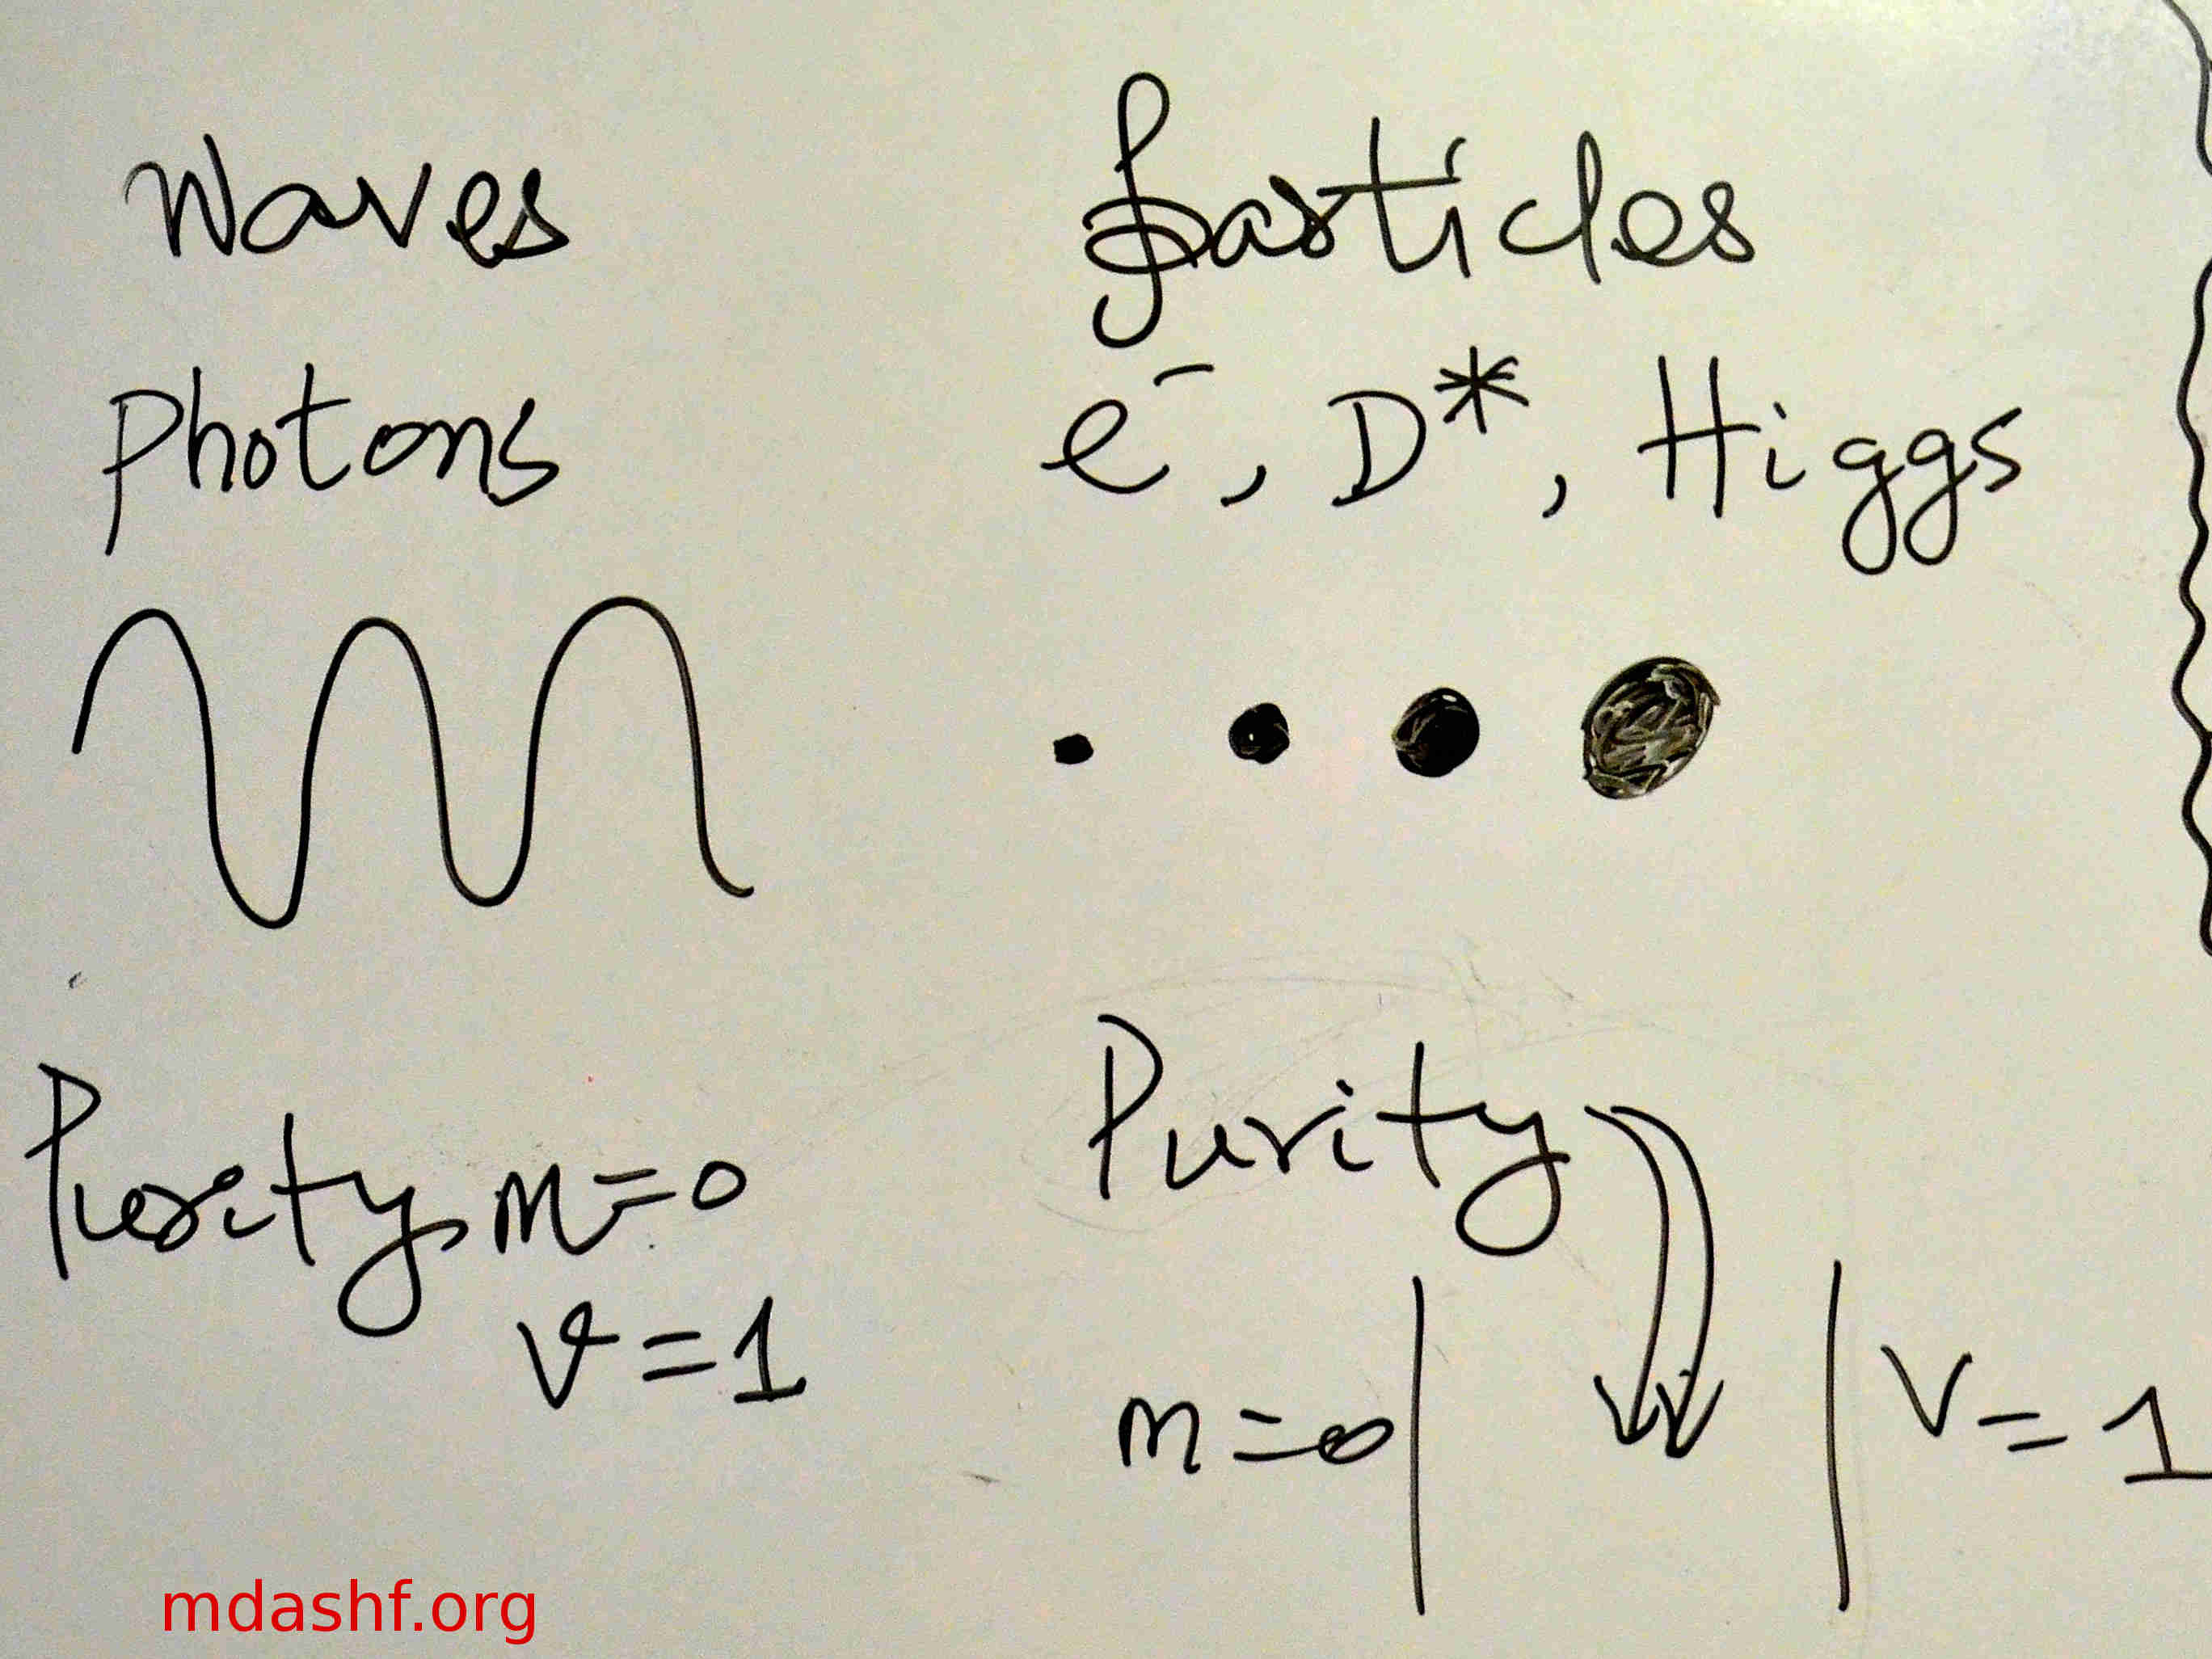 Waves
Particles
Photons
e⁻, D*, Higgs
Purity m=0
v=1
Purity
m=0
v=1
mdashf.org